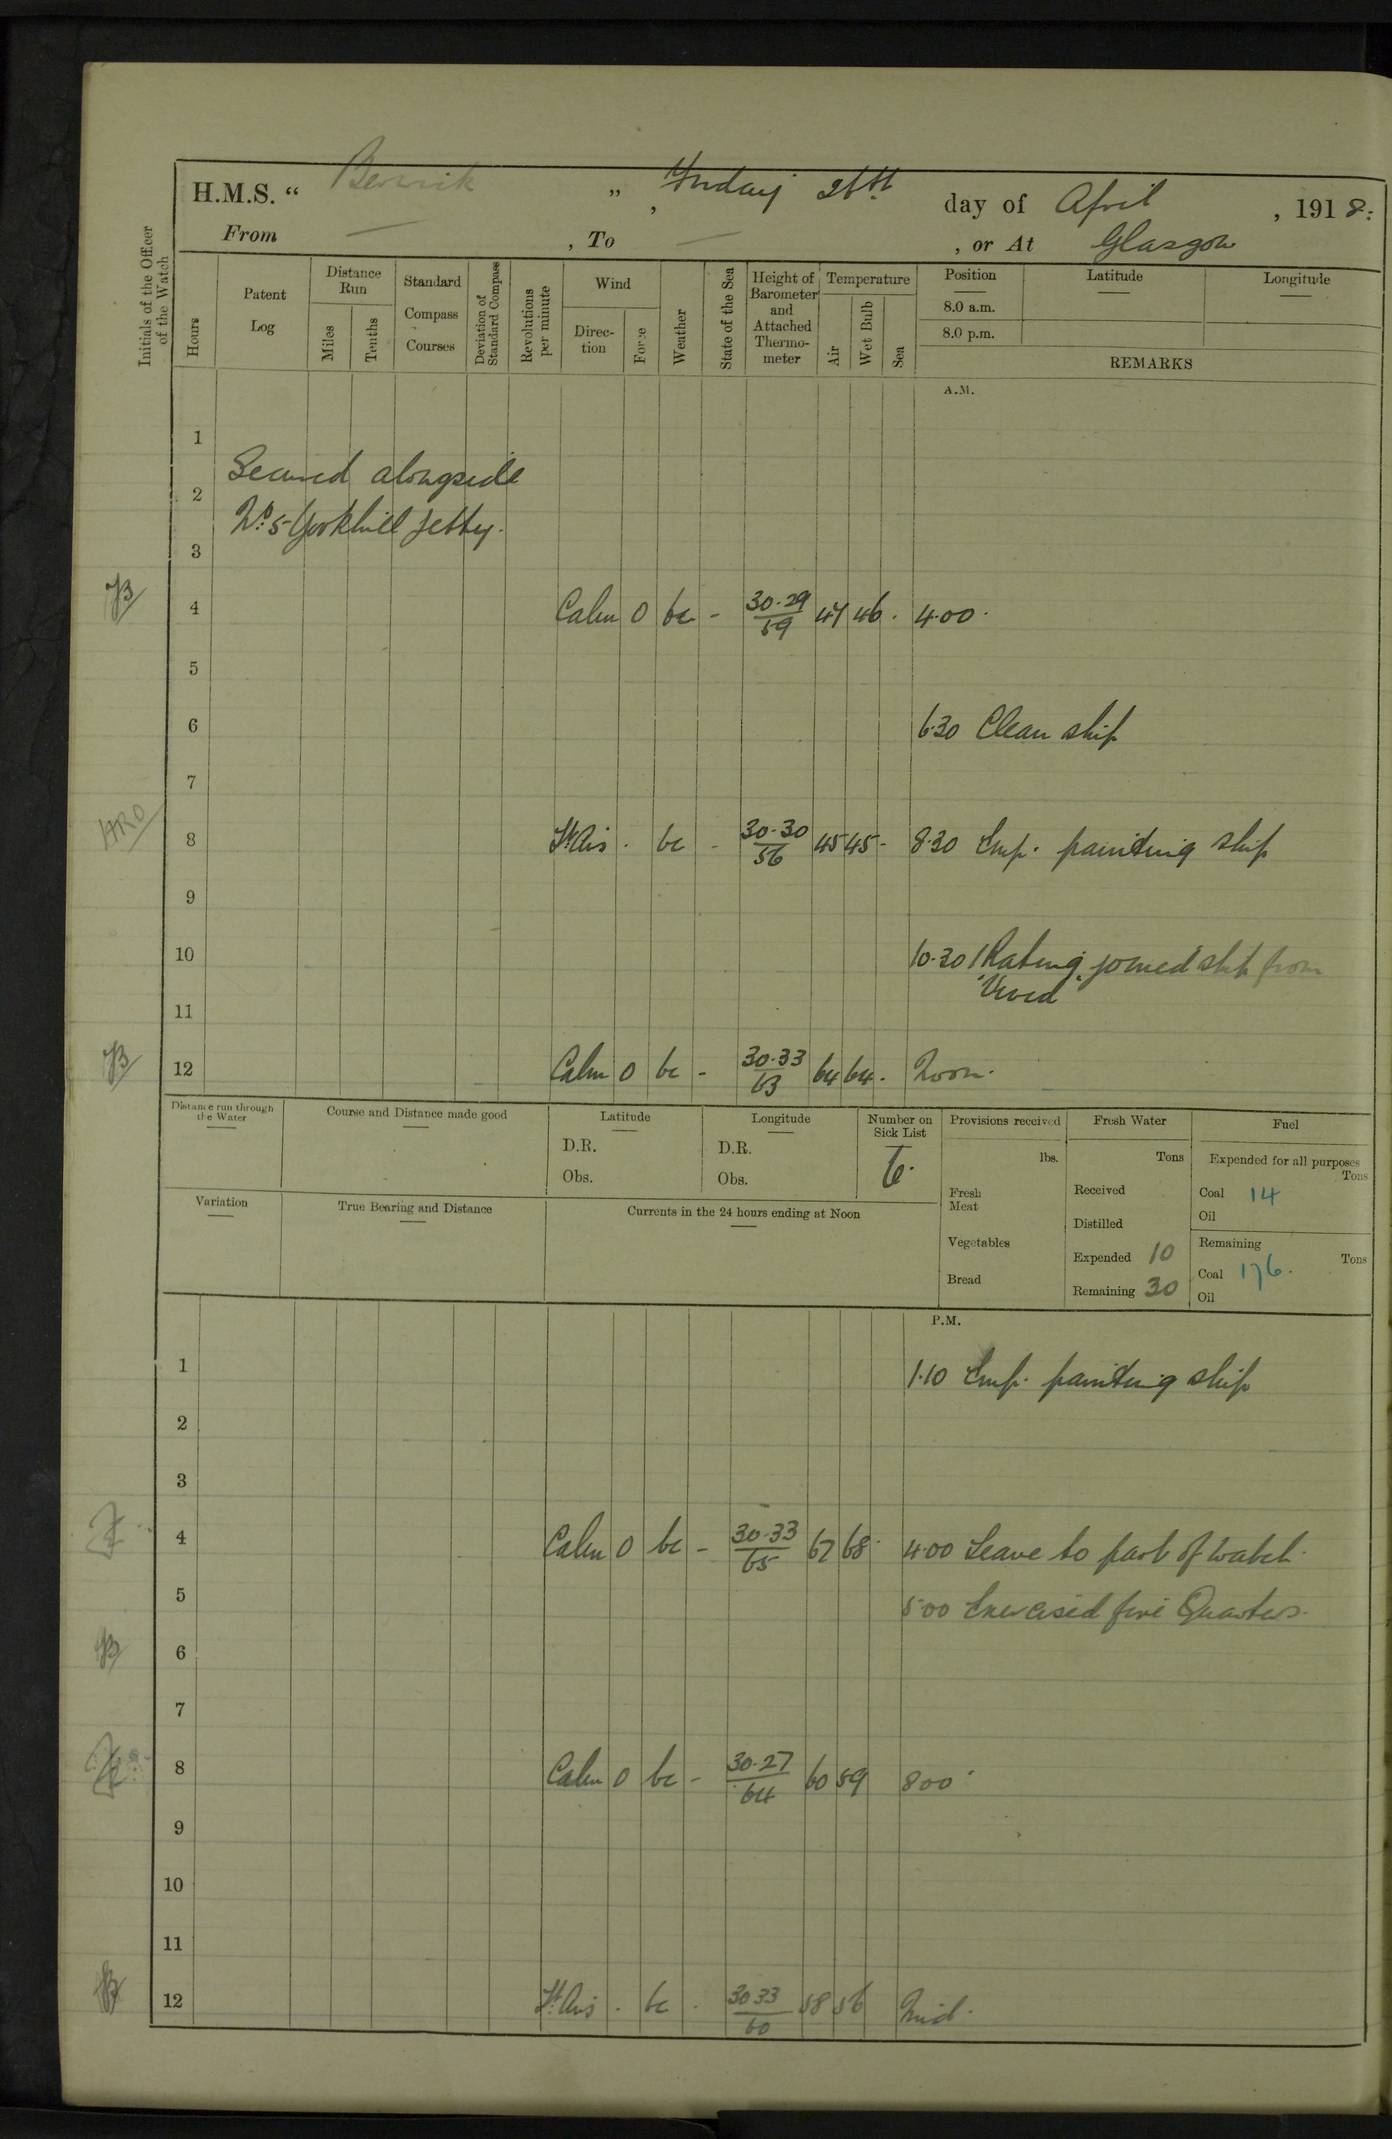 H.M.S. “ Berwick ” , Friday 26th day of April , 1918.
From — , To — , or At Glasgow
Initials of the Officer of the Watch
Hours
Patent Log
Distance Run
Miles
Tenths
Standard Compass Courses
Deviation of Standard Compass
Revolutions per minute
Wind
Direc-tion
Force
Weather
State of the Sea
Height of Barometer and Attached Thermo-meter
Temperature
Air
Wet Bulb
Sea
Position
8.0 a.m.
8.0 p.m.
Latitude
Longitude
REMARKS
A.M.
1
Secured alongside
2
No. 5 Yorkhill Jetty.
3
4 Calm 0 bc - 30.29/59 47 46 . 4.00 .
5
6 6.30 Clean ship
7
HRO 8 Lt Airs . bc - 30.30/56 45 45 - 8.30 Emp. painting ship
9
10 10.30 1 Rating joined ship from
"Vivid"
11
12 Calm 0 bc - 30.33/63 64 64 . Noon.
Distance run through the Water
Course and Distance made good
Latitude
D.R.
Obs.
Longitude
D.R.
Obs.
Number on Sick List
6.
Provisions received
lbs.
Fresh Meat
Vegetables
Bread
Fresh Water
Tons
Received
Distilled
Expended 10
Remaining 30
Fuel
Expended for all purposes
Tons
Coal 14
Oil
Remaining
Tons
Coal 176.
Oil
Variation
True Bearing and Distance
Currents in the 24 hours ending at Noon
P.M.
1 1.10 Emp. painting ship
2
3
4 Calm 0 bc - 30.33/65 67 68 . 4.00 Leave to part of watch.
5 5.00 Exercised fire Quarters.
6
7
8 Calm 0 bc - 30.27/64 60 59 8.00 .
9
10
11
12 Lt Airs . bc . 30.33/60 58 56 Mid.